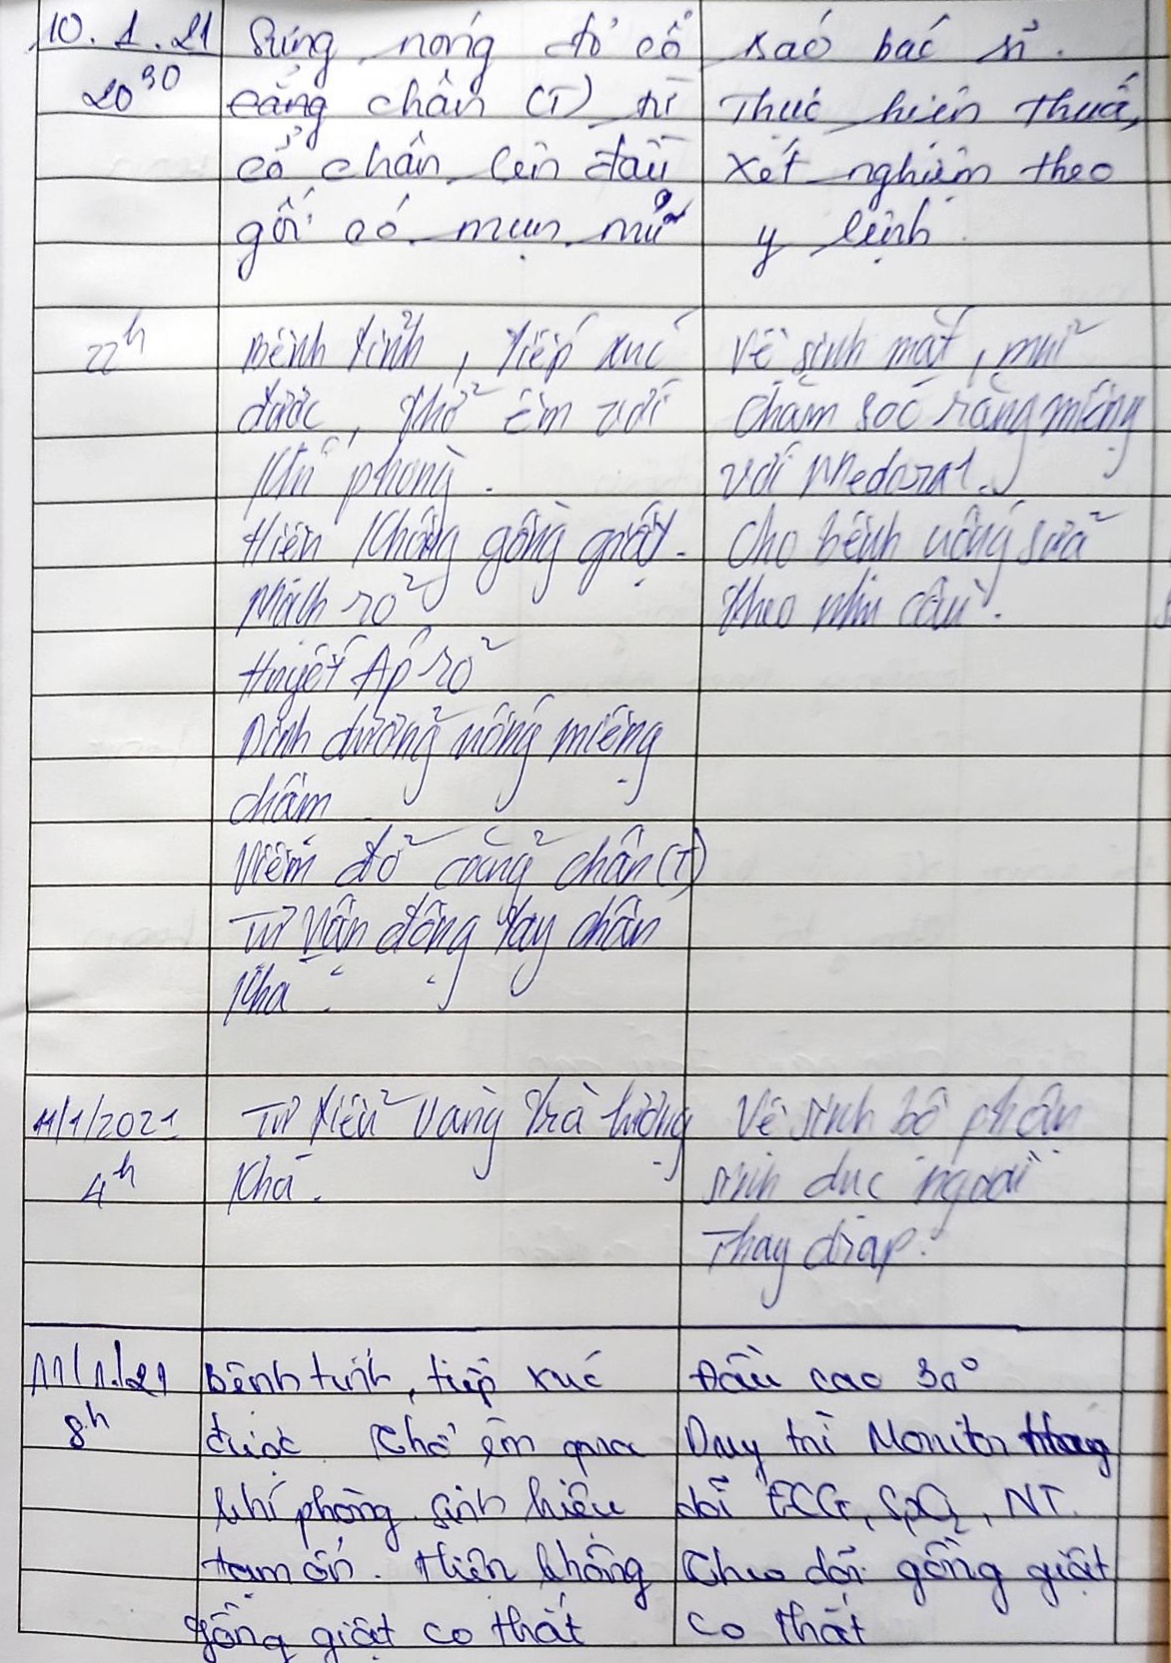 10.1.21
20 30
Sưng nóng đỏ cổ
cẳng chân (T) từ
cổ chân lên đầu
gối có mụn mủ
Báo bác sĩ.
Thực hiện thuốc,
xét nghiệm theo
y lệnh.
22h
Bệnh tỉnh, tiếp xúc
được, thở êm với
khí phòng.
Hiện không gồng giật.
Mạch rõ
Huyết Áp rõ
Dinh dưỡng uống miệng
chậm
Viêm đỏ cẳng chân (T)
Tự vận động tay chân
khá.
Vệ sinh mắt, mũi
Chăm sóc răng miệng
với Medoral.
Cho bệnh uống sữa
theo nhu cầu.
11/1/2021
4h
Tự tiểu vàng trà lượng
khá.
Vệ sinh bộ phận
sinh dục ngoài
Thay drap.
11/1/21
8h
Bệnh tỉnh, tiếp xúc
được thở êm qua
khí phòng. sinh hiệu
tạm ổn. Hiện không
gồng giật co thắt
Đầu cao 30°
Duy trì Monitor theo
dõi ECG, SpO2, NT.
Theo dõi gồng giật
co thắt